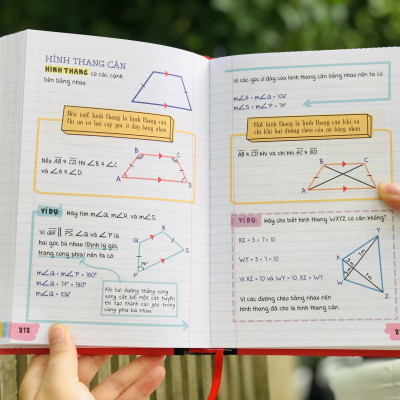 HÌNH THANG CÂN
HÌNH THANG có các cạnh
bên bằng nhau
Nếu một hình thang là hình thang cân
thì nó có hai cặp góc ở đáy bằng nhau.
Nếu AB ≅ CD thì ∠B ≅ ∠C
và ∠A ≅ ∠D.
B C
A D
VÍ DỤ: Hãy tìm m∠Q, m∠R, và m∠S.
Vì QR ∥ PS ∠Q và ∠P là
hai góc bù nhau (Định lý góc
trong cùng phía) nên ta có
m∠Q + m∠P = 180°
m∠Q + 74° = 180°
m∠Q = 106°
Q R
P S
74°
Khi hai đường thẳng song
song cắt bởi một cát tuyến
thì tạo thành các góc trong
cùng phía bù nhau.
212
Vì các góc ở đáy của hình thang cân bằng nhau nên ta có
m∠R = m∠Q = 106°
m∠S = m∠P = 74°
Một hình thang là hình thang cân khi và
chỉ khi hai đường chéo của nó bằng nhau.
AB ≅ CD khi và chỉ khi AC ≅ BD
B C
A D
VÍ DỤ: Hãy cho biết hình thang WXYZ có cân không?
XZ = 3 + 7 = 10
WY = 3 + 7 = 10
Vì XZ = 10 và WY = 10, XZ = WY.
Vì các đường chéo bằng nhau nên
hình thang đã cho là hình thang cân.
Y
X
W
Z